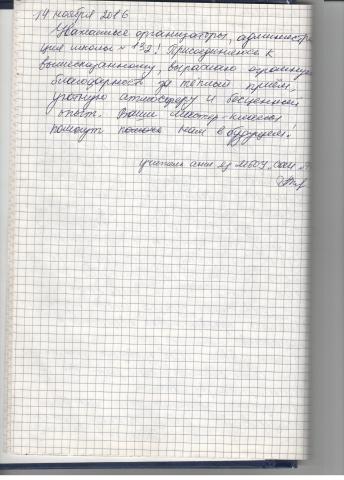 14 ноября 2016
Уважаемые организаторы, администра-
ция школы № 132! Присоединяюсь к
вышесказанному, выражаю огромную
благодарность за тёплый приём,
уютную атмосферу и бесценный
опыт. Ваши мастер-классы
помогут помочь нам в будущем!
учитель англ яз МБОУ „СОШ №